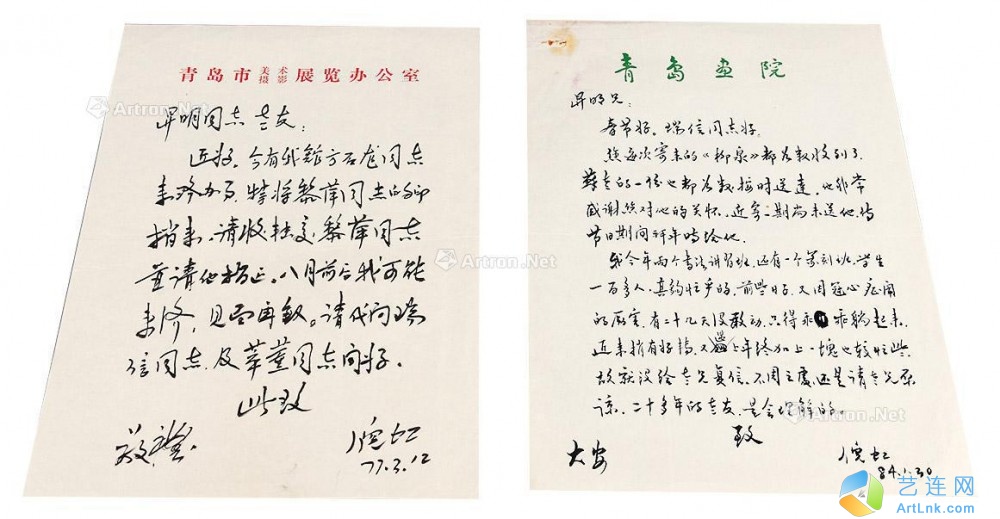 青岛市美术摄影展览办公室
昇明同志老友:
近好。今有我馆方石虎同志
来济办事,特将黎萍同志的印
捎来,请收转交黎萍同志
并请他指正。八月前后我可能
来济,见面再叙。请代问瑞
信同志及莘莹同志问好。
此致
敬礼
倪虹
77.3.12
青岛画院
昇明兄:
春节好。瑞信同志好。
您每次寄来的《柳泉》都如数收到了
苏老的一份也都如数按时送达,他非常
感谢您对他的关怀。近寄二期尚未送他,待
节日期间拜年时给他。
我今年两个书法讲习班,还有一个篆刻班,学生
一百多人,真够忙乎的。前些日子,又因冠心症闹
的厉害,有二十九天没敢动,只得乖乖躺起来。
近来稍有好转,又逢上年终加上一块也较忙些,
故就没给老兄复信,不周之处还是请老兄原
谅,二十多年的老友,是会理解的。
致
大安
倪虹
84.1.30
Artron.Net
Artron.Net
Artron.Net
Artron.Net
Artron.Net
艺连网
ArtLnk.com